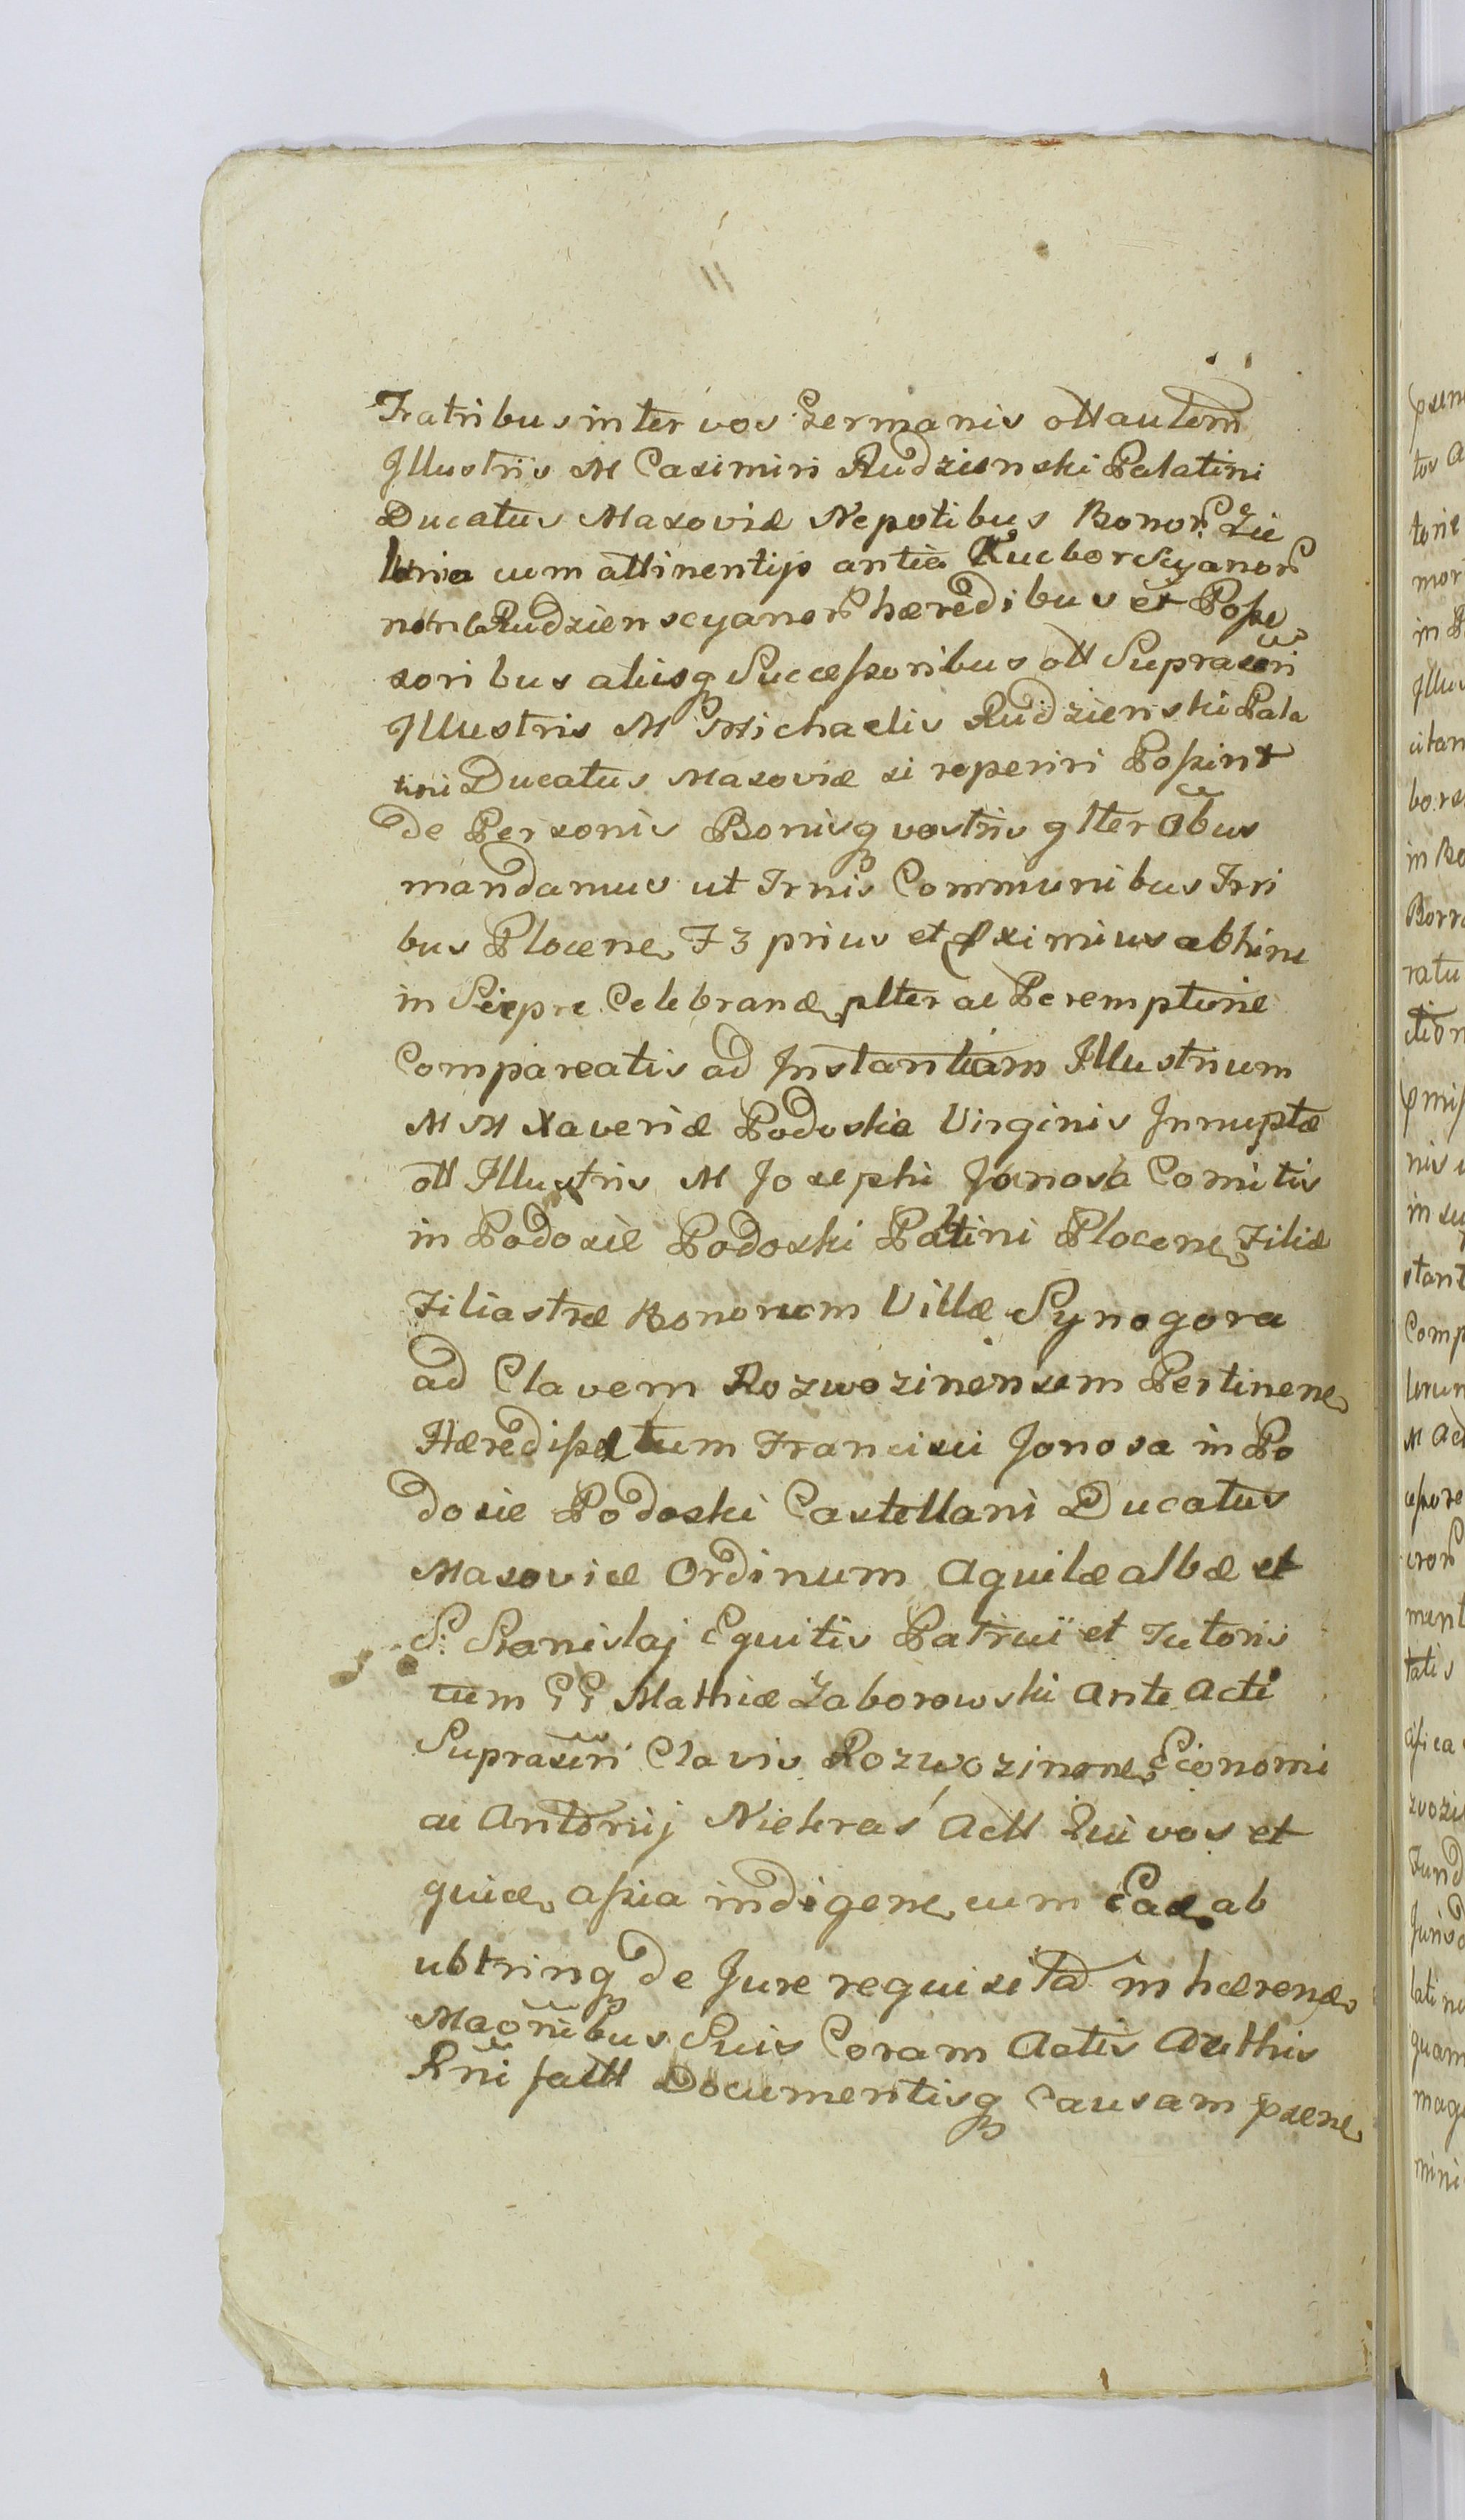 Fratribus inter vos Germanis olt autem
Illustris M Casimiri Rudzienski Palatini
Ducatus Masoviæ Nepotibus Bonor Zie
lona cum attinentijs antea Kucborscyanor
Rudzienscyanor hæredibus et Poße
soribus aliisq Succeßoribus olt Suprascri
Illustris M Michaelis Rudzienski Pala
tini Ducatus Masoviæ si reperiri Poßint
de Personis Bonisq vestris glter obus
mandamus ut Trnis Communibus Trri
bus Plocene F 3 prius et Pximius abhinc
in Sierpre Celebrand plter ac Peremptorie
Compareatis ad Instantiam Illustrium
M M Xaveriæ Podoskie Virginis Innuptæ
olt Illustris M Josephi Jonosa Comitis
in Podosie Podoski Paltini Plocene Filiæ
Filiastræ Bonorum Villæ Synogora
ad Clavem Rozwozinensem Pertinene
Hæredißæ tum Francisci Jonosa in Po
dosie Podoski Castellani Ducatus
Masoviæ Ordinum Aquilæ albæ et
S. Stanislaj Equitis Patrui et Tutoris
tum GG Mathiæ Zaborowski Ante Acti
Suprascri Clavis Rozwozinene Economi
ac Antonij Niehras Actt Qui vos et
quiæ aßia indigene cum Ead ab
ubtrinq de Jure requisita in hærend
Maonibus Suis Coram Actis Authis
Rni factt Documentisq Causam psene